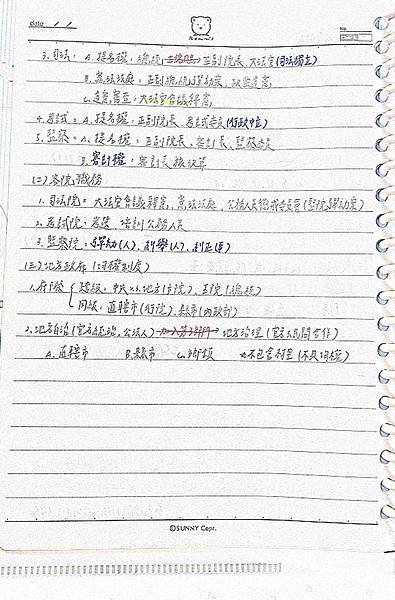 date / /
No.
3.司法: A.提名權: 總統 正副院長、大法官(司法獨立)
B.憲法法庭: 正副總統彈劾案、政黨違憲
C.違憲審查: 大法官會議釋憲
4.考試= A.提名權: 正副院長、考試委員(行政中立)
5.監察= A.提名權: 正副院長、審計長、監察委員
B.審計權= 審計長核決算
(二)各院職務
1.司法院= 大法官會議釋憲、憲法法庭、公務人員懲戒委員會(監院彈劾案)
2.考試院: 考選、培訓公務人員
3.監察院= 彈劾(人)、糾舉(人)、糾正(事)
(三)地方政府(均權制度)
1.府際 跨級: 中央vs.地方(行院)、五院(總統)
同級: 直轄市(行院)、縣市(內政部)
2.地方自治(官方組織、公法人) 地方治理(官方民間合作)
A.直轄市 B.縣市 C.鄉鎮 *不包含村里(不具均權)
©SUNNY Copr.